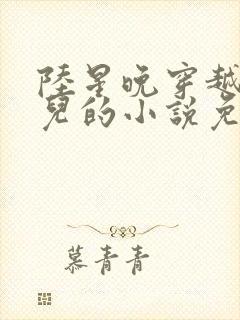 陸星晚穿越
兒的小說免
慕青青